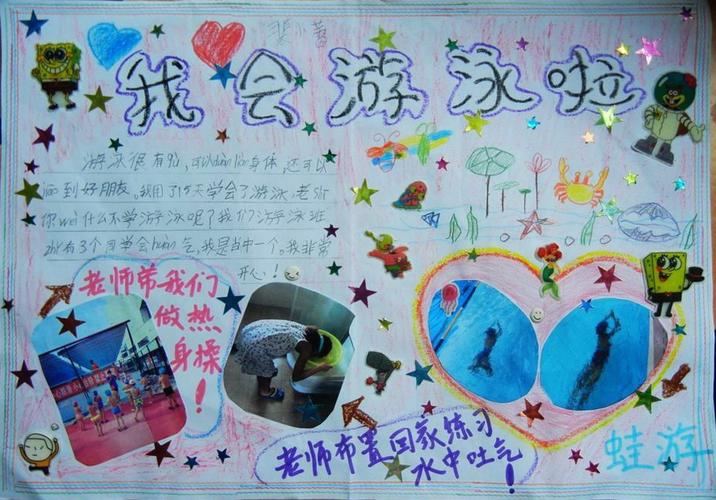 我会游泳啦
游泳很有qù,可以duàn liàn身体,还可以
到好朋友。我用了15天学会了游泳,老shī
你wèi什么不学游泳呢?我们游泳班
zhǐ有3个同学会huàn气,我是当中一个。我非常
开心!
老师带我们
做热
身操
!
老师布置回家练习
水中吐气!
蛙游